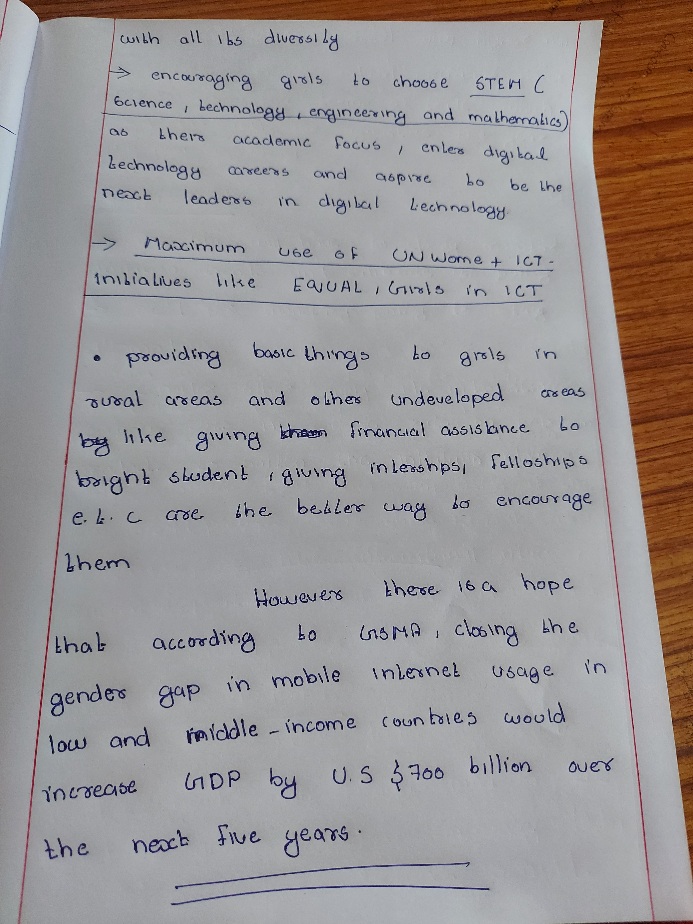 with all its diversity
→ encouraging girls to choose STEM (
Science, technology, engineering and mathematics)
as there academic focus, enter digital
technology careers and aspire to be the
next leaders in digital technology.
→ Maximum use of UN Wome + ICT -
Initiatives like EQUAL, Girls in ICT
• providing basic things to grols in
rural areas and other undeveloped areas
by like giving them financial assistance to
bright student, giving intershps, felloships
e.t.c are the better way to encourage
them
However there is a hope
that according to GSMA, closing the
gender gap in mobile internet usage in
low and middle-income countries would
increase GDP by U.S $700 billion over
the next five years.